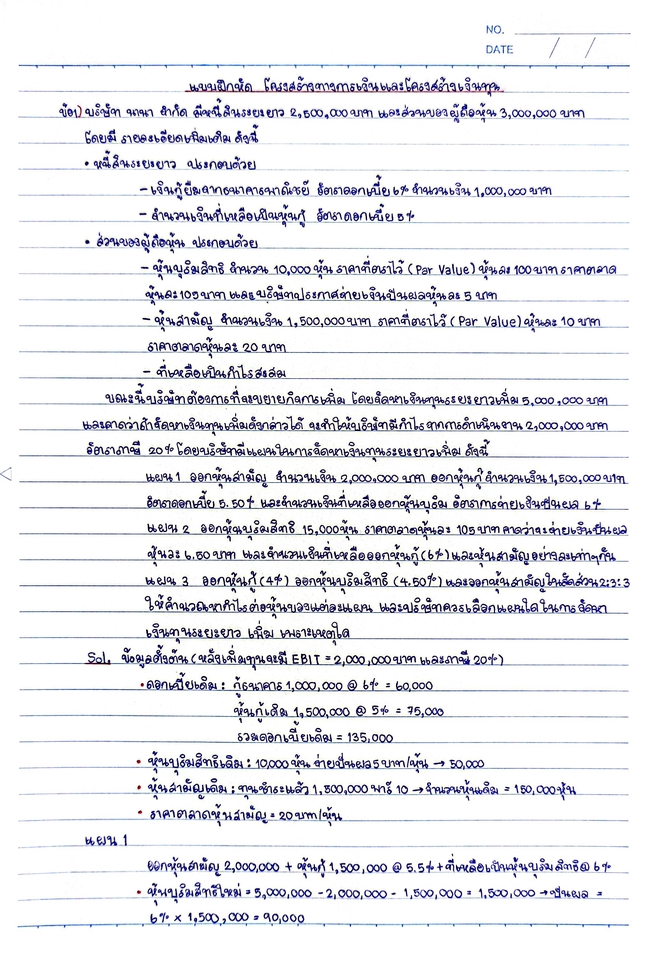 NO.
DATE / /
แบบฝึกหัด โครงสร้างทางการเงินและโครงสร้างเงินทุน
ข้อ1) บริษัท นานา จำกัด มีหนี้สินระยะยาว 2,500,000 บาท และส่วนของผู้ถือหุ้น 3,000,000 บาท
โดยมี รายละเอียดเพิ่มเติม ดังนี้
• หนี้สินระยะยาว ประกอบด้วย
– เงินกู้ยืมจากธนาคารพาณิชย์ อัตราดอกเบี้ย 6% จำนวนเงิน 1,000,000 บาท
– จำนวนเงินที่เหลือเป็นหุ้นกู้ อัตราดอกเบี้ย 5%
• ส่วนของผู้ถือหุ้น ประกอบด้วย
– หุ้นบุริมสิทธิ จำนวน 10,000 หุ้น ราคาที่ตราไว้ (Par Value) หุ้นละ 100 บาท ราคาตลาด
หุ้นละ 105 บาท และบริษัทประกาศจ่ายเงินปันผลหุ้นละ 5 บาท
– หุ้นสามัญ จำนวนเงิน 1,500,000 บาท ราคาที่ตราไว้ (Par Value) หุ้นละ 10 บาท
ราคาตลาดหุ้นละ 20 บาท
– ที่เหลือเป็นกำไรสะสม
ขณะนี้บริษัทต้องการที่จะขยายกิจการเพิ่ม โดยจัดหาเงินทุนระยะยาวเพิ่ม 5,000,000 บาท
และคาดว่าถ้าจัดหาเงินทุนเพิ่มดังกล่าวได้ จะทำให้บริษัทมีกำไรจากการดำเนินงาน 2,000,000 บาท
อัตราภาษี 20% โดยบริษัทมีแผนในการจัดหาเงินทุนระยะยาวเพิ่ม ดังนี้
แผน 1 ออกหุ้นสามัญ จำนวนเงิน 2,000,000 บาท ออกหุ้นกู้ จำนวนเงิน 1,500,000 บาท
อัตราดอกเบี้ย 5.50% และจำนวนเงินที่เหลือออกหุ้นบุริม อัตราการจ่ายเงินปันผล 6%
แผน 2 ออกหุ้นบุริมสิทธิ 15,000 หุ้น ราคาตลาดหุ้นละ 105 บาท คาดว่าจะจ่ายเงินปันผล
หุ้นละ 6.50 บาท และจำนวนเงินที่เหลือออกหุ้นกู้ (6%) และหุ้นสามัญอย่างละเท่าๆกัน
แผน 3 ออกหุ้นกู้ (4%) ออกหุ้นบุริมสิทธิ (4.50%) และออกหุ้นสามัญในสัดส่วน 2:3:3
ให้คำนวณหากำไรต่อหุ้นของแต่ละแผน และบริษัทควรเลือกแผนใดในการจัดหา
เงินทุนระยะยาว เพิ่ม เพราะเหตุใด
Sol. ข้อมูลตั้งต้น (หลังเพิ่มทุนจะมี EBIT = 2,000,000 บาท และภาษี 20%)
• ดอกเบี้ยเดิม : กู้ธนาคาร 1,000,000 @ 6% = 60,000
หุ้นกู้เดิม 1,500,000 @ 5% = 75,000
รวมดอกเบี้ยเดิม = 135,000
• หุ้นบุริมสิทธิเดิม : 10,000 หุ้น จ่ายปันผล 5 บาท/หุ้น → 50,000
• หุ้นสามัญเดิม ; ทุนชำระแล้ว 1,500,000 พาร์ 10 → จำนวนหุ้นเดิม = 150,000 หุ้น
• ราคาตลาดหุ้นสามัญ = 20 บาท/หุ้น
แผน 1
ออกหุ้นสามัญ 2,000,000 + หุ้นกู้ 1,500,000 @ 5.5% + ที่เหลือเป็นหุ้นบุริมสิทธิ @ 6%
• หุ้นบุริมสิทธิใหม่ = 5,000,000 – 2,000,000 – 1,500,000 = 1,500,000 → ปันผล =
6% × 1,500,000 = 90,000